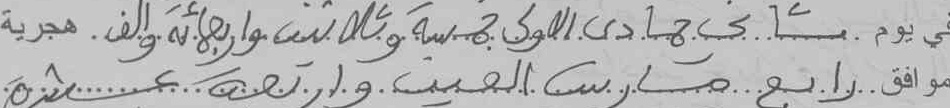 في يوم ثاني جمادى الاولى خمسة وثلاثين واربعمائة والف هجرية
موافق رابع مارس الفين واربعة عشرة